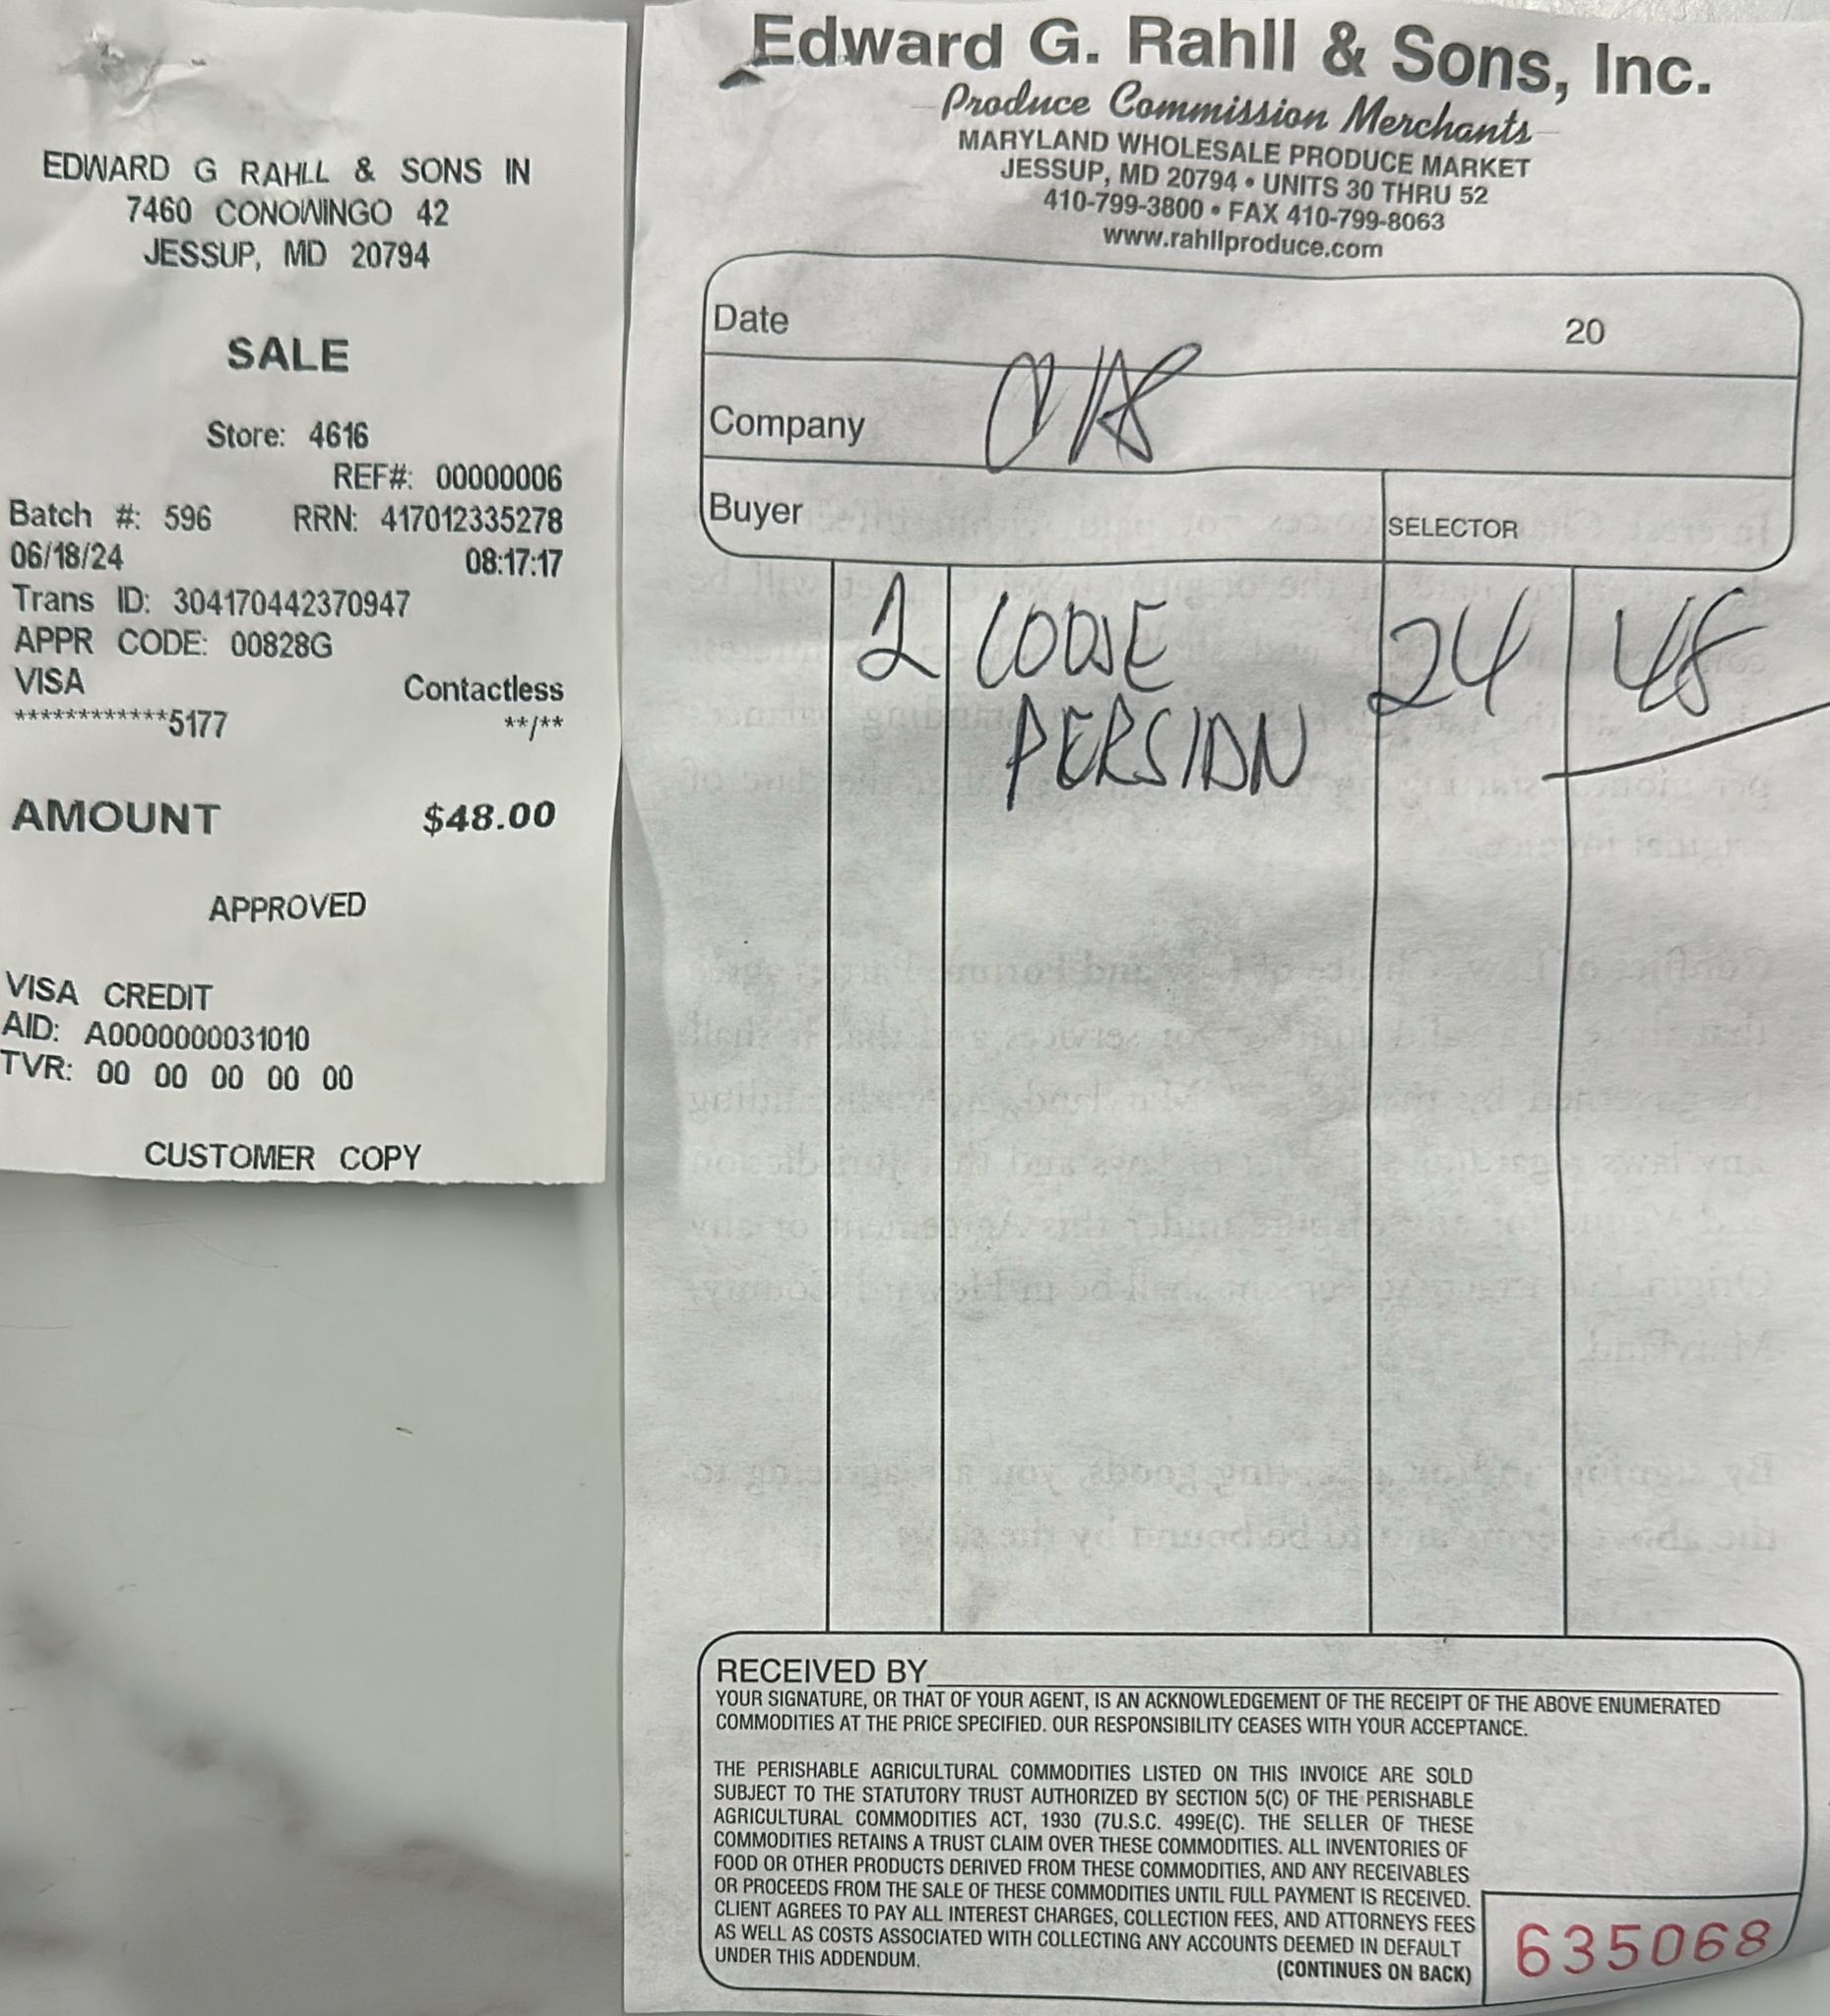 EDWARD G RAHLL & SONS IN
7460 CONOWINGO 42
JESSUP, MD 20794
SALE
Store: 4616
REF#: 00000006
Batch #: 596 RRN: 417012335278
06/18/24 08:17:17
Trans ID: 304170442370947
APPR CODE: 00828G
VISA Contactless
************5177 **/**
AMOUNT $48.00
APPROVED
VISA CREDIT
AID: A0000000031010
TVR: 00 00 00 00 00
CUSTOMER COPY
Edward G. Rahll & Sons, Inc.
Produce Commission Merchants
MARYLAND WHOLESALE PRODUCE MARKET
JESSUP, MD 20794 • UNITS 30 THRU 52
410-799-3800 • FAX 410-799-8063
www.rahllproduce.com
Date 20
Company
Buyer SELECTOR
2 LOOSE 24 48
PERSIAN
RECEIVED BY
YOUR SIGNATURE, OR THAT OF YOUR AGENT, IS AN ACKNOWLEDGEMENT OF THE RECEIPT OF THE ABOVE ENUMERATED
COMMODITIES AT THE PRICE SPECIFIED. OUR RESPONSIBILITY CEASES WITH YOUR ACCEPTANCE.
THE PERISHABLE AGRICULTURAL COMMODITIES LISTED ON THIS INVOICE ARE SOLD
SUBJECT TO THE STATUTORY TRUST AUTHORIZED BY SECTION 5(C) OF THE PERISHABLE
AGRICULTURAL COMMODITIES ACT, 1930 (7U.S.C. 499E(C). THE SELLER OF THESE
COMMODITIES RETAINS A TRUST CLAIM OVER THESE COMMODITIES. ALL INVENTORIES OF
FOOD OR OTHER PRODUCTS DERIVED FROM THESE COMMODITIES, AND ANY RECEIVABLES
OR PROCEEDS FROM THE SALE OF THESE COMMODITIES UNTIL FULL PAYMENT IS RECEIVED.
CLIENT AGREES TO PAY ALL INTEREST CHARGES, COLLECTION FEES, AND ATTORNEYS FEES
AS WELL AS COSTS ASSOCIATED WITH COLLECTING ANY ACCOUNTS DEEMED IN DEFAULT
UNDER THIS ADDENDUM.
(CONTINUES ON BACK)
635068